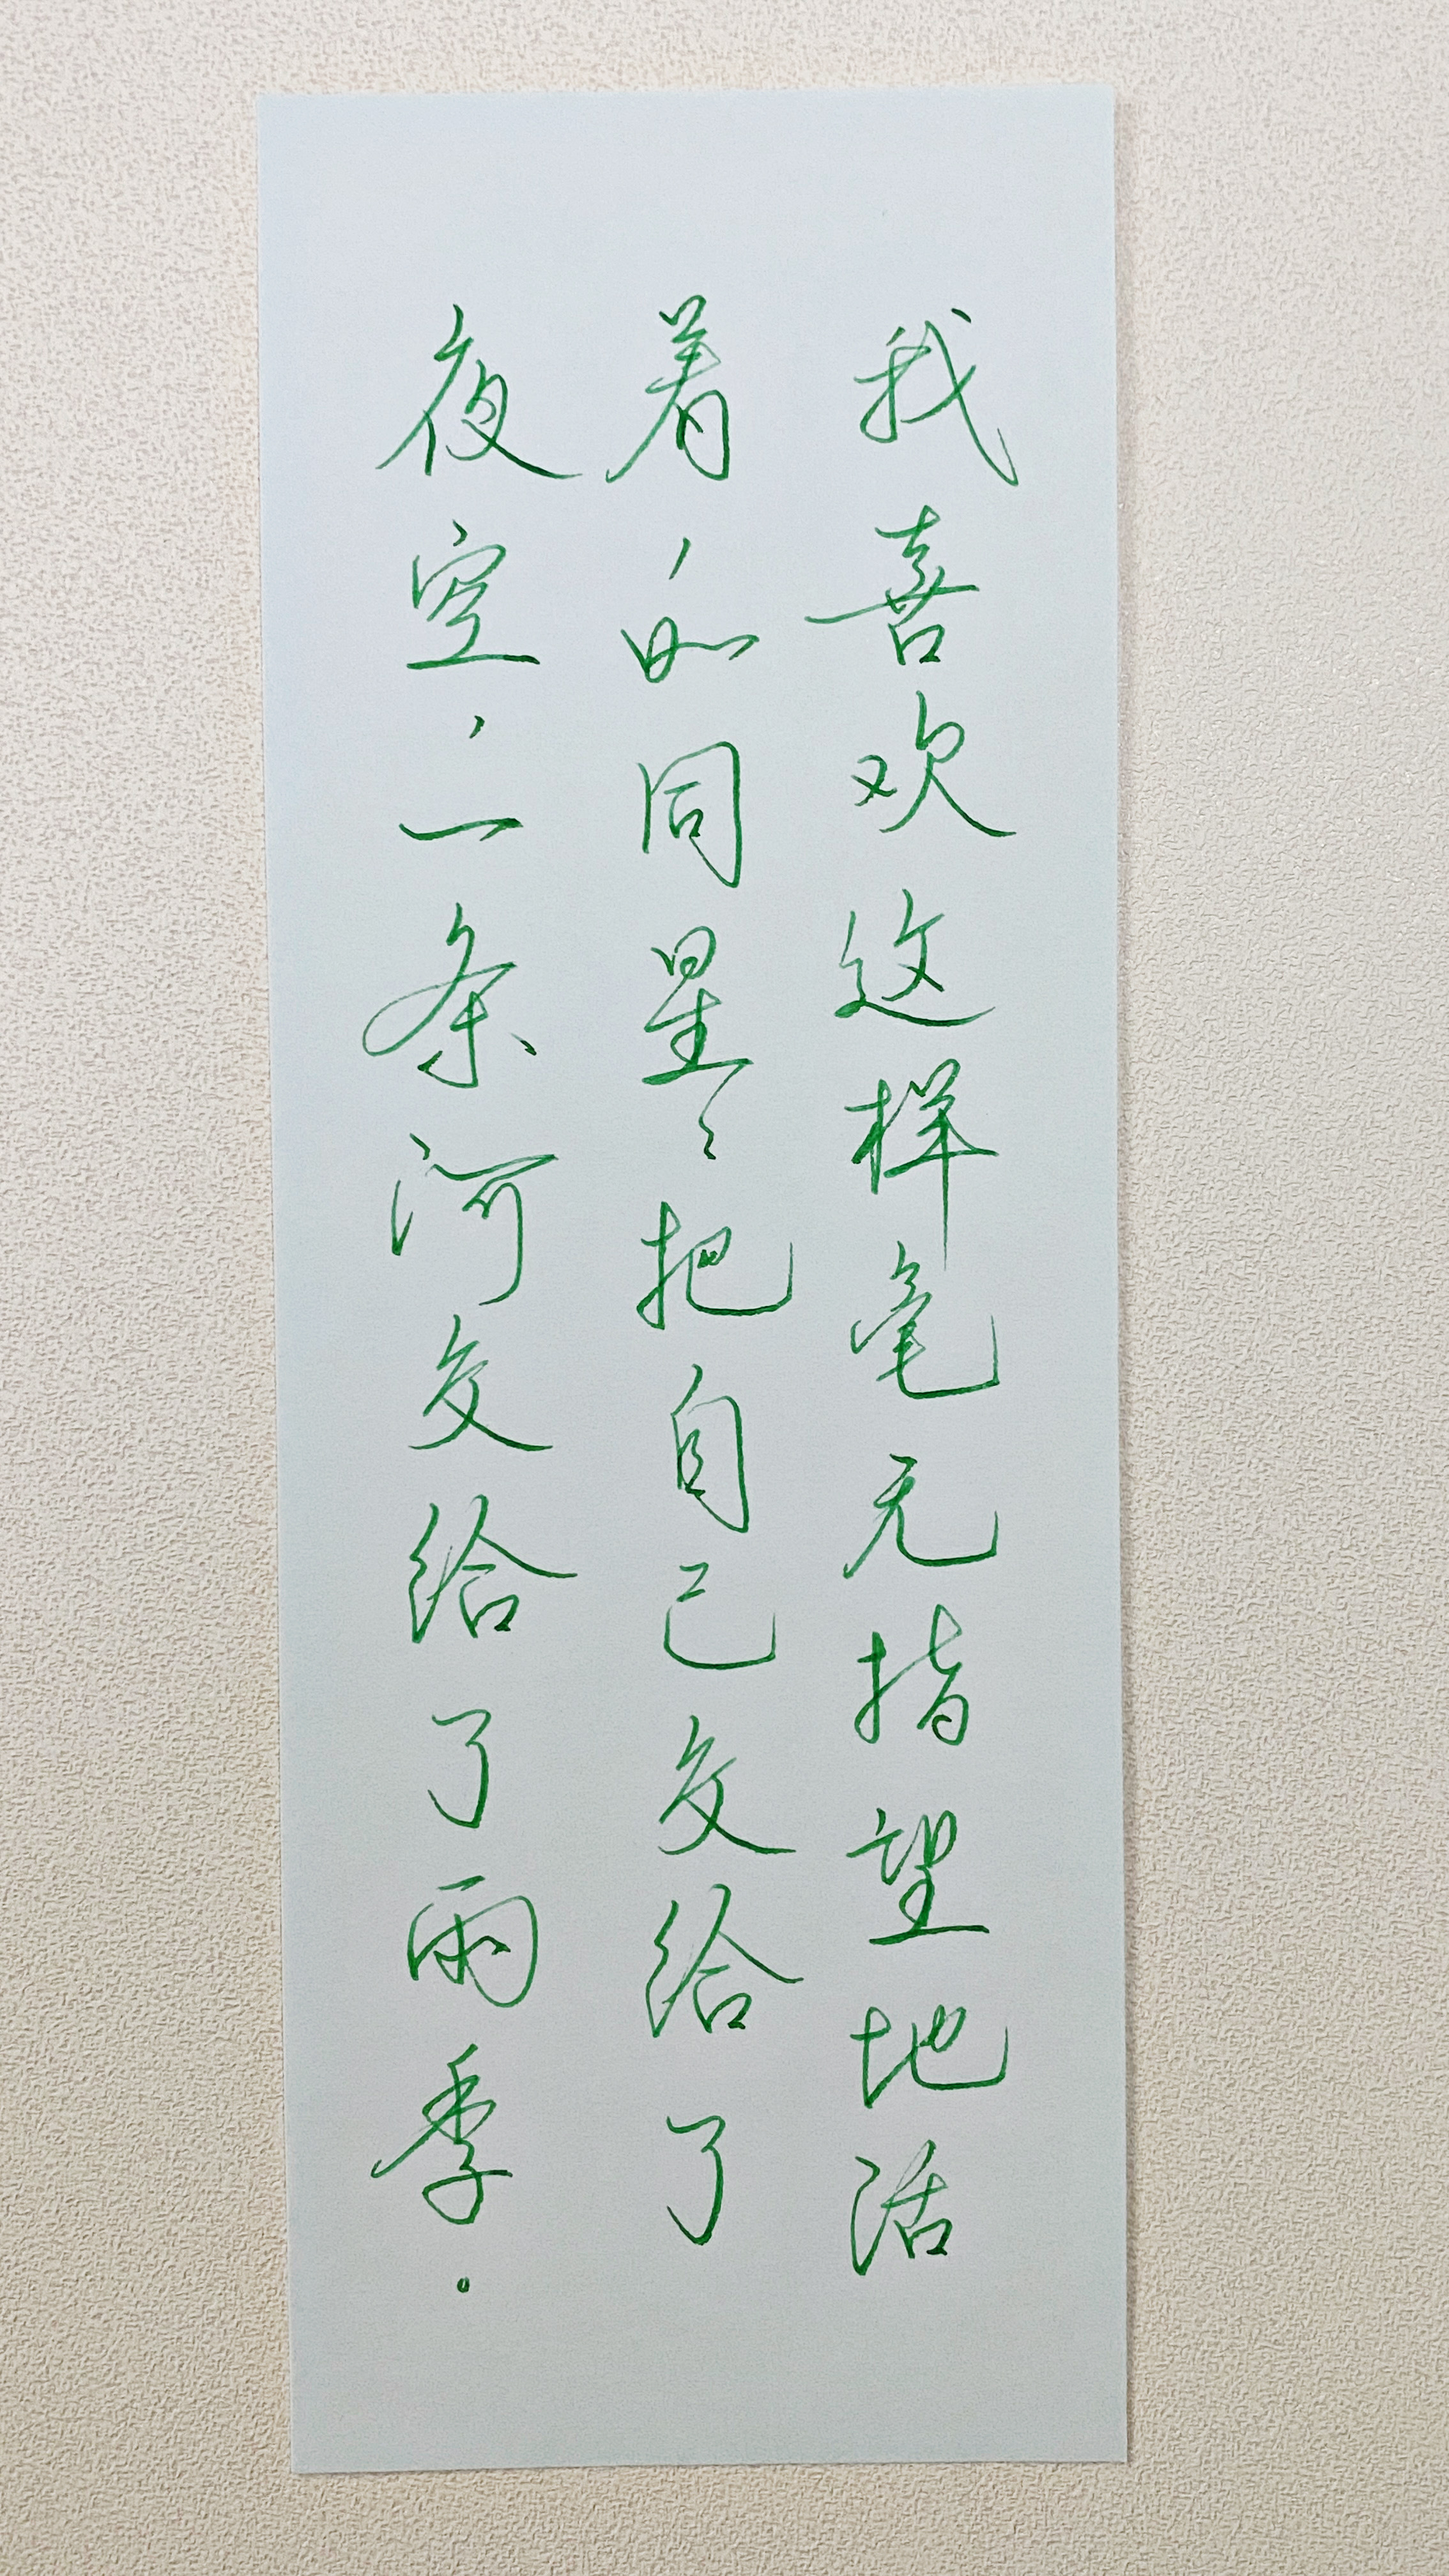 我喜欢这样毫无指望地活
着，如同星々把自己交给了
夜空，一条河交给了雨季。